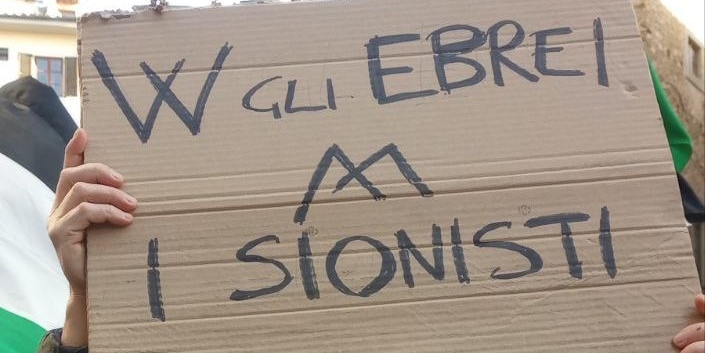 W GLI EBREI
M
I SIONISTI